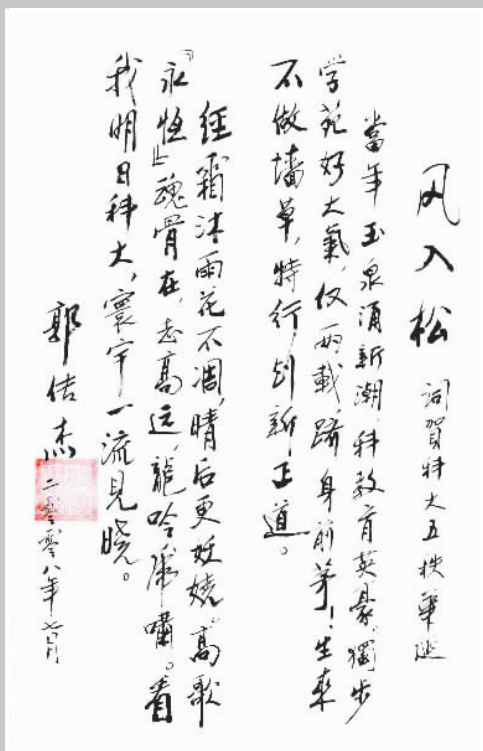 风入松 词賀科大五秩華诞
當年玉泉涌新潮，科教育英豪。獨步
学苑好大氣，仅两載，跻身前茅！生來
不做墙草，特行创新正道。
經霜沐雨花不凋，晴后更妖娆。高歌
『永恒』魂骨在，志高远，龍吟虎嘯。看
我明日科大，寰宇一流見晓。
郭传杰 二零零八年七月